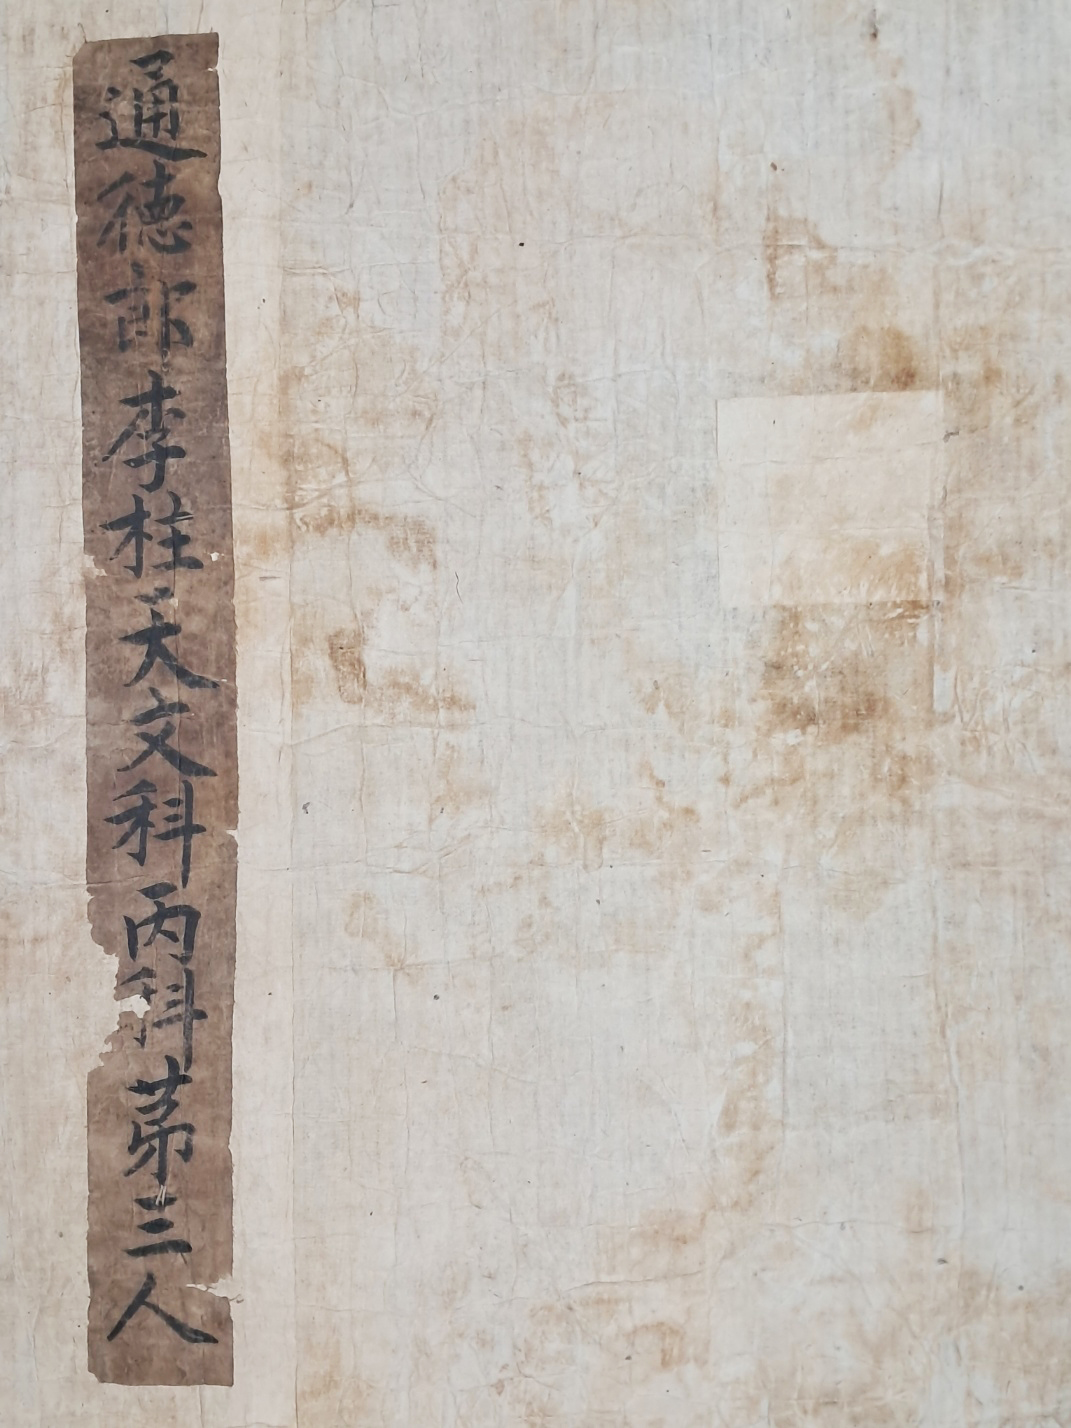 通德郎李柱天文科丙科苐三人